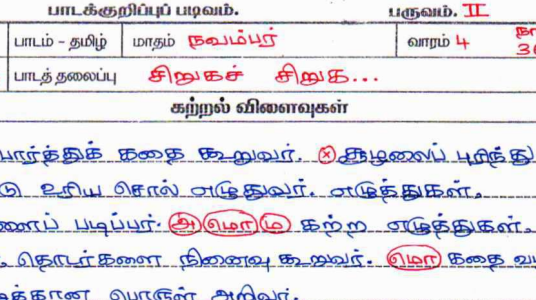 பாடக்குறிப்புப் படிவம். பருவம். II
பாடம் - தமிழ் மாதம் நவம்பர் வாரம் 4
பாடத் தலைப்பு சிறுகச் சிறுக...
கற்றல் விளைவுகள்
பார்த்துக் கதை கூறுவர். சூழலைப் புரிந்து
உரிய சொல் எழுதுவர். எழுத்துகள்.
படிப்பர். அ மொ ம கற்ற எழுத்துகள்.
தொடர்களை நினைவு கூறுவர். மொ கதை
பொருள் அறிவர்.